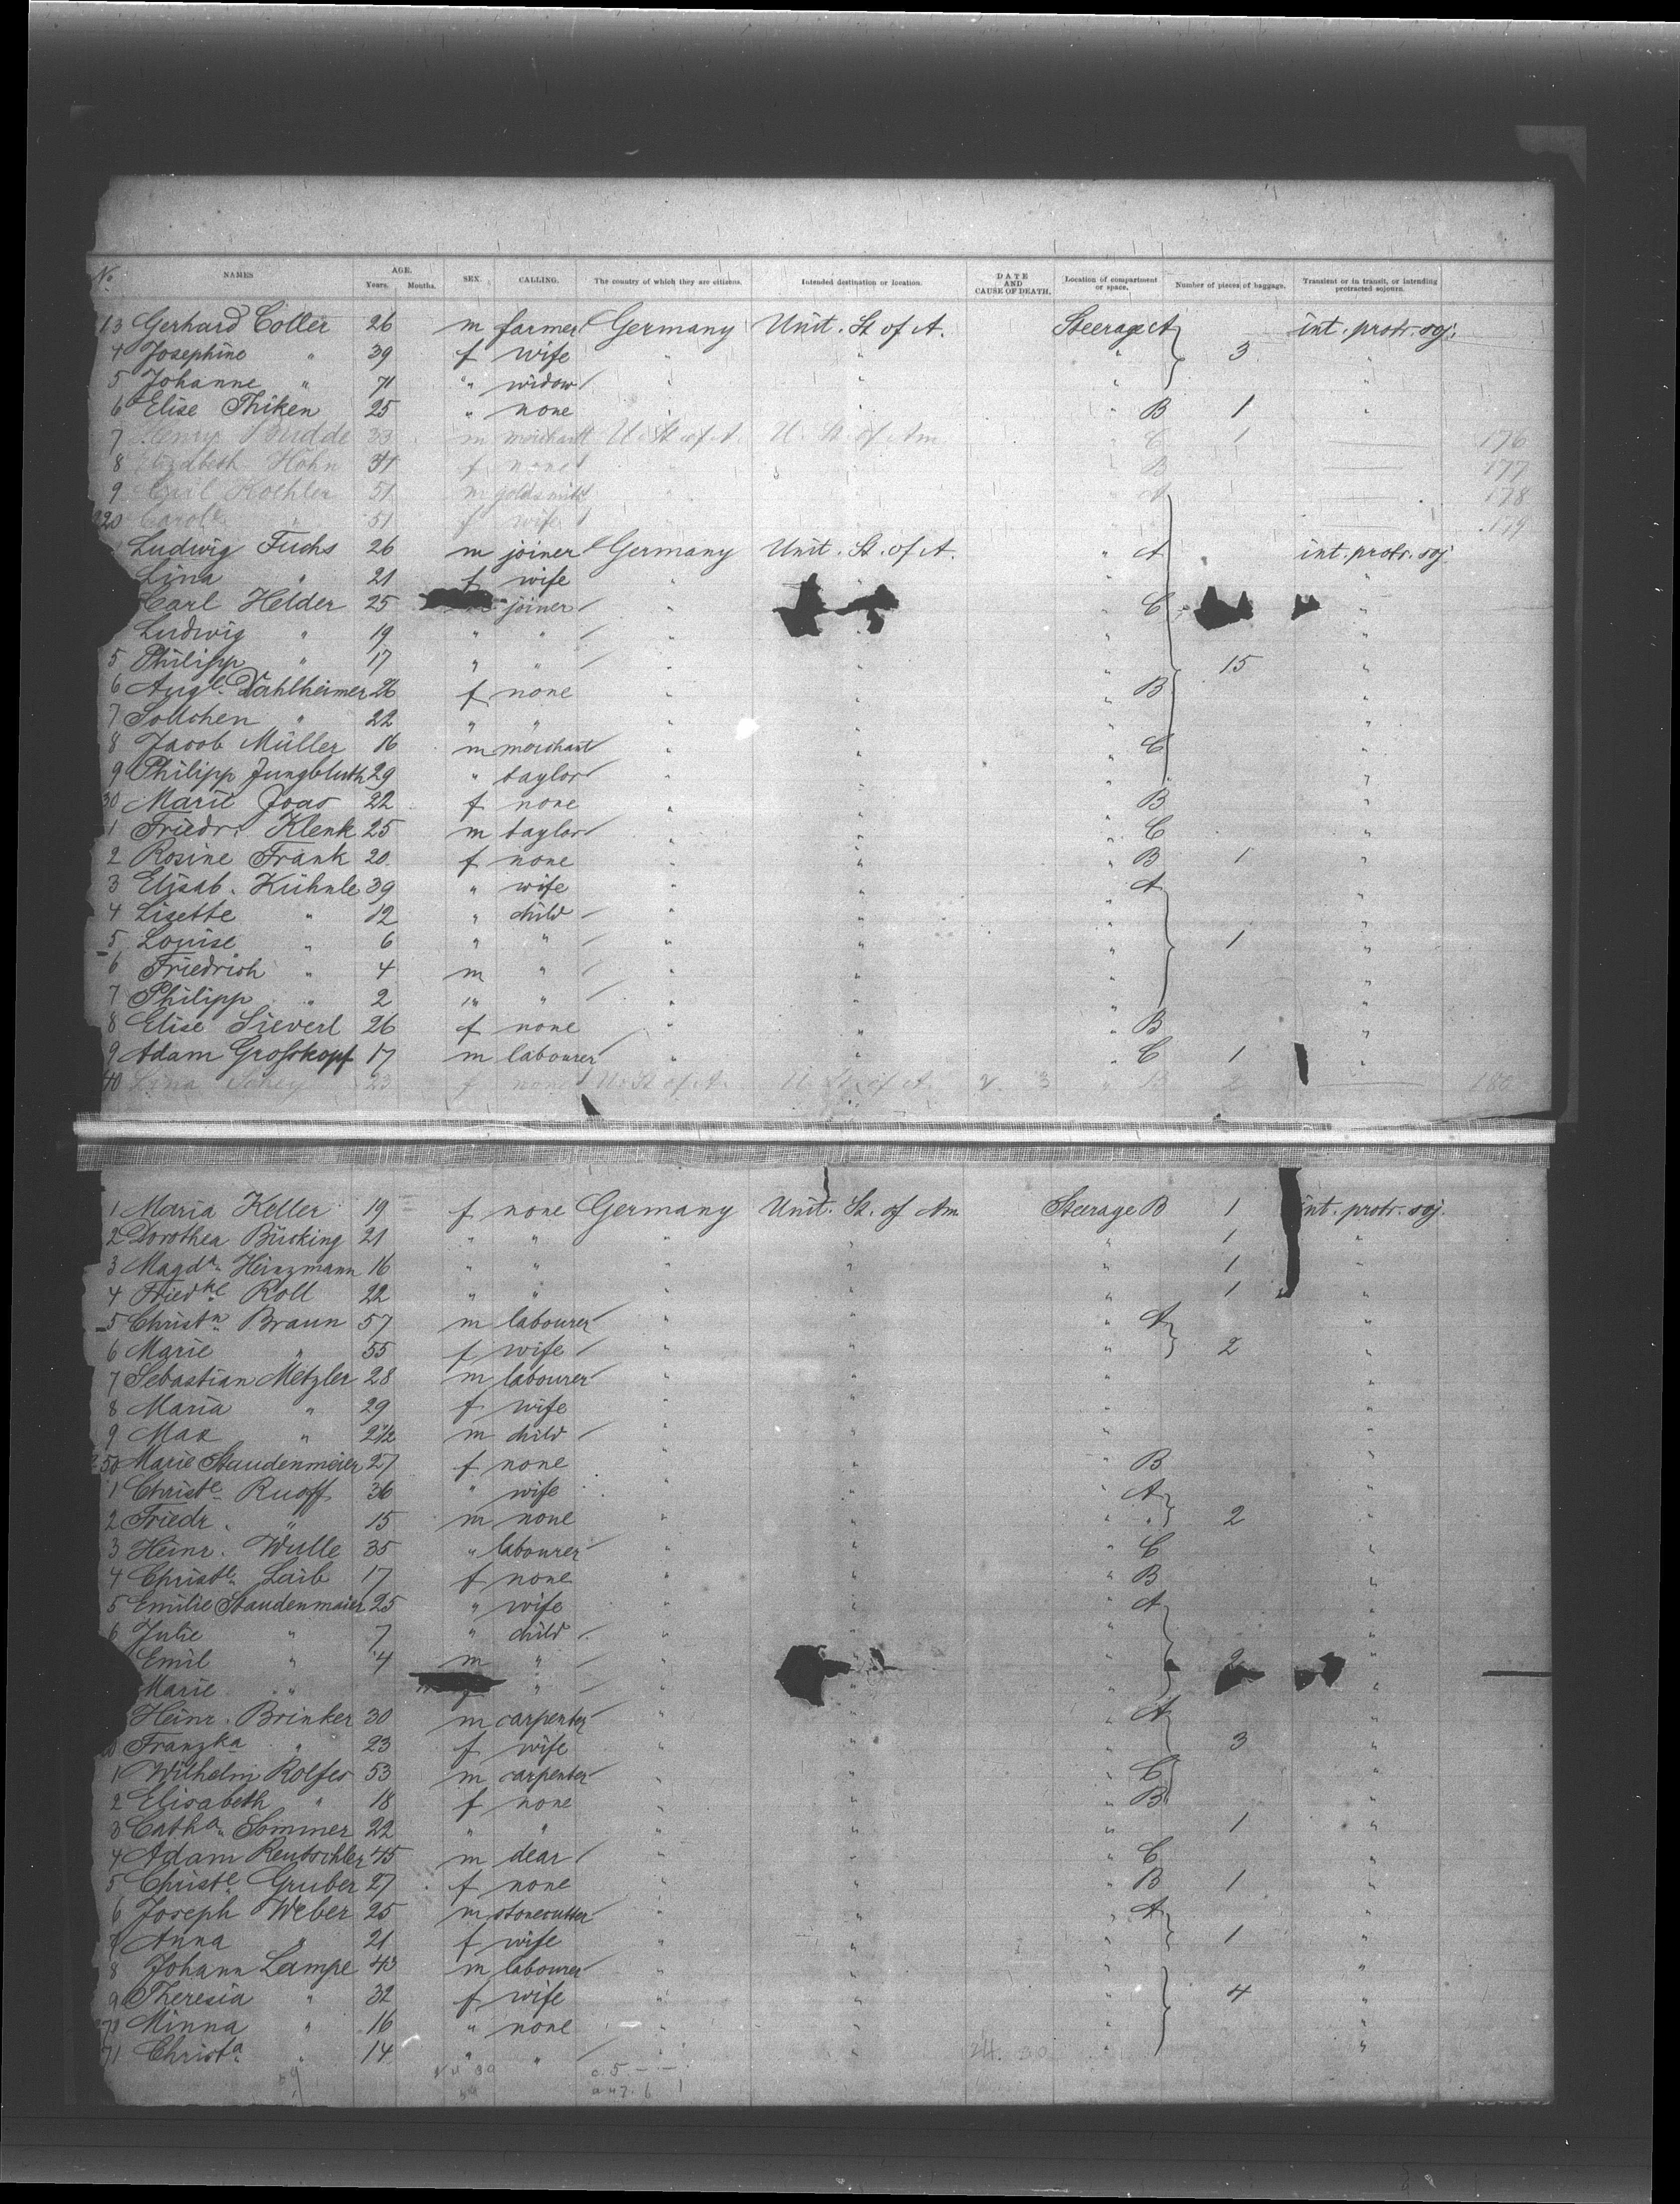 No. NAMES AGE. Years. Months. SEX. CALLING. The country of which they are citizens. Intended destination or location. DATE AND CAUSE OF DEATH. Location of compartment or space. Number of pieces of baggage. Transient or in transit, or intending protracted sojourn.
13 Gerhard Coller 26 m farmer Germany Unit. St. of A. Steerage A int. protr. soj.
4 Josephine " 39 f wife " " " 3
5 Johanne " 71 " widow " " " "
6 Elise Thiken 25 " none " " " B 1 "
7 Henry Budde 33 m merchant U. St. of A. U. St. of Am " C 1 176
8 Elizabeth Höhn 31 f none " " " B 177
9 Carl Koehler 51 m goldsmith " " A 178
220 Carole " 51 f wife 179
Ludwig Fuchs 26 m joiner Germany Unit. St. of A. " A int. protr. soj
Lina " 21 f wife " " "
Carl Helder 25 joiner " " C "
Ludwig " 19 " " " " "
5 Philipp " 17 " " " " " 15 "
6 Auge. Dahlheimer 26 f none " " " B "
7 Lottchen " 22 " " " " " "
8 Jacob Müller 16 m merchant " " " C "
9 Philipp Jungbluth 29 " taylor " " " " "
30 Marie Joas 22 f none " " " B "
1 Friedr. Klenk 25 m taylor " " " C "
2 Rosine Frank 20 f none " " " B 1 "
3 Elisab. Kühnle 39 " wife " " " A "
4 Lisette " 12 " child " " " "
5 Louise " 6 " " " " " 1 "
6 Friedrich " 4 m " " " " "
7 Philipp " 2 " " " " " "
8 Elise Sieverl 26 f none " " " B "
9 Adam Grosskopf 17 m labourer " " " C 1 "
40 Lina 23 f none U. St. of A. U. St. of A. " B 2 180
1 Maria Keller 19 f none Germany Unit. St. of Am Steerage B 1 int. protr. soj.
2 Dorothea Büsking 21 " " " " " 1 "
3 Magda. Heinzmann 16 " " " " " 1
4 Friedke Roll 22 " " " " " 1 "
5 Christn. Braun 57 m labourer " " " A "
6 Marie " 55 f wife " " " 2 "
7 Sebastian Metzler 28 m labourer " " " "
8 Maria " 29 f wife " " " "
9 Max " 2½ m child " " " "
250 Marie Staudenmeier 27 f none " " " B "
1 Christe. Ruoff 36 " wife " " A "
2 Friedr. " 15 m none " " " " 2 "
3 Heinr. Wulle 35 " labourer " " " C "
4 Christe. Laib 17 f none " " " B "
5 Emilie Staudenmaier 25 " wife " " " A "
6 Julie " 7 " child " " " "
Emil " 4 m " " " " 2 "
Marie " " " " " "
Heinr. Brinker 30 m carpenter " " " A "
Franzka " 23 f wife " " " 3 "
1 Wilhelm Rolfes 53 m carpenter " " " C "
2 Elisabeth " 18 f none " " " B "
3 Catha. Sommer 22 " " " " " 1 "
4 Adam Rentschler 45 m dear " " " C "
5 Christe Gruber 27 f none " " " B 1 "
6 Joseph Weber 25 m stonecutter " " " A "
7 Anna " 21 f wife " " " 1 "
8 Johann Lampe 43 m labourer " " " "
9 Theresia " 32 f wife " " " 4 "
70 Minna " 16 " none " " " "
71 Christa. " 14 " " " "